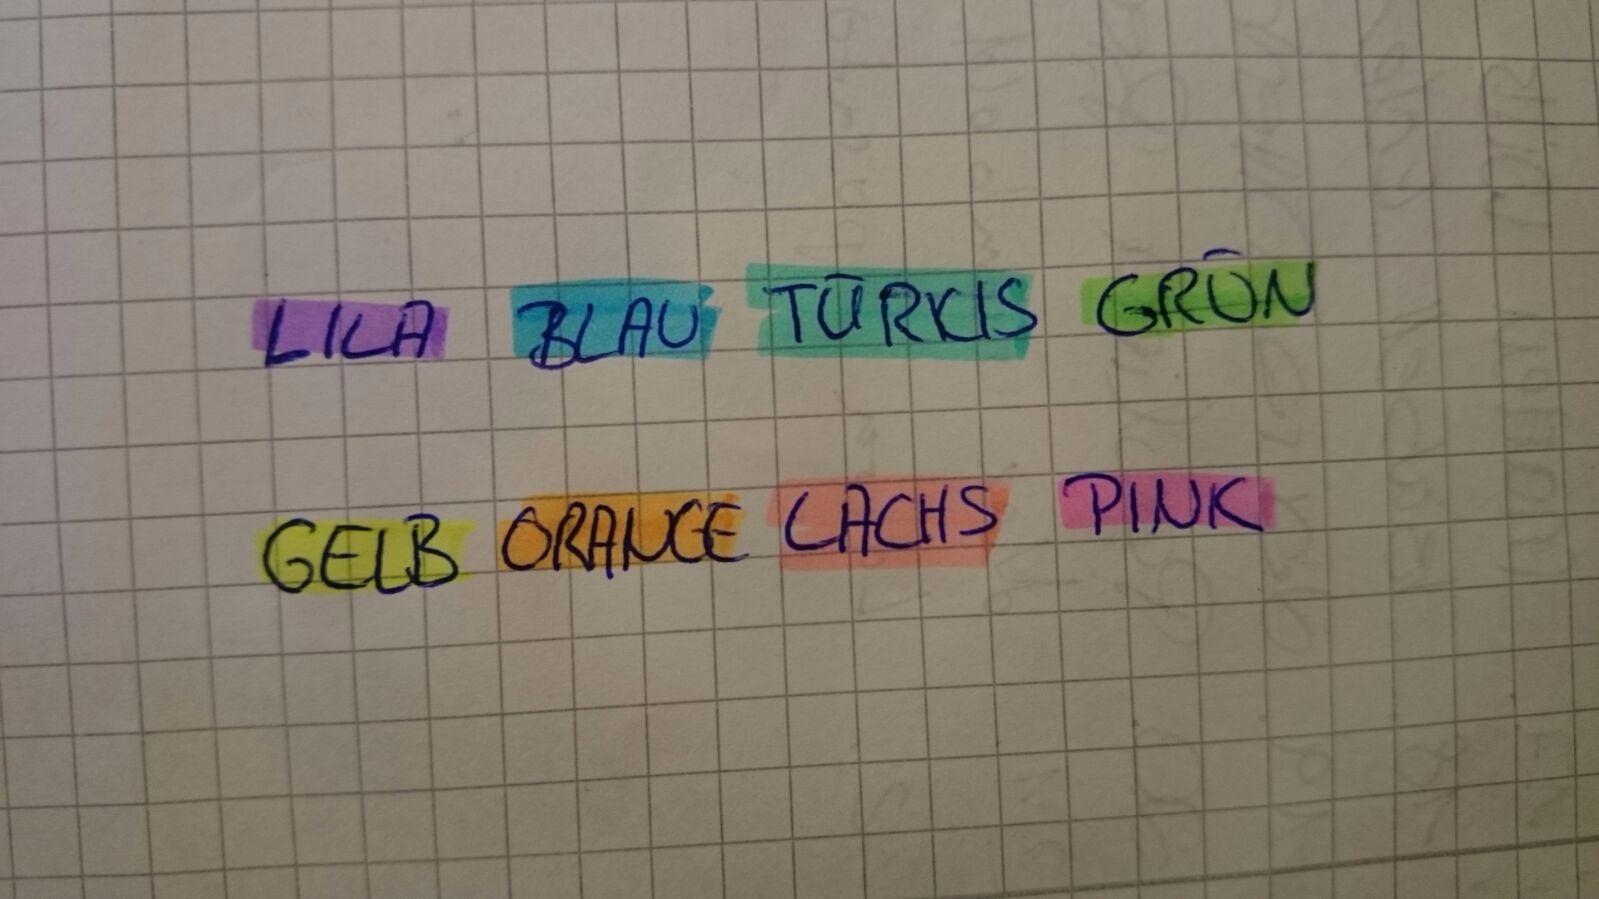 LILA BLAU TÜRKIS GRÜN
GELB ORANGE LACHS PINK